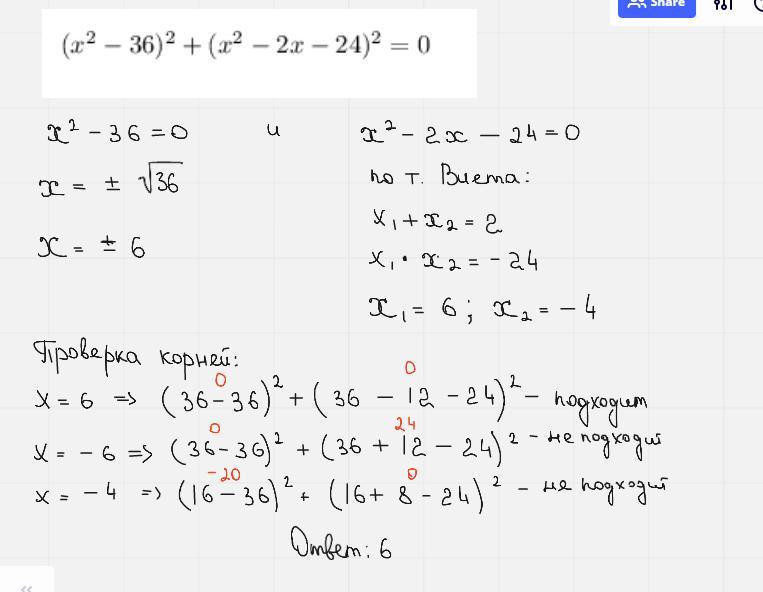 Share
(x² − 36)² + (x² − 2x − 24)² = 0
x² - 36 = 0 и x² - 2x - 24 = 0
x = ± √36 по т. Виета:
x₁ + x₂ = 2
x = ± 6 x₁ · x₂ = - 24
x₁ = 6 ; x₂ = - 4
Проверка корней:
0 0
x = 6 => (36 - 36)² + (36 - 12 - 24)² - подходит
0 24
x = - 6 => (36 - 36)² + (36 + 12 - 24)² - не подходит
-20 0
x = - 4 => (16 - 36)² + (16 + 8 - 24)² - не подходит
Ответ: 6